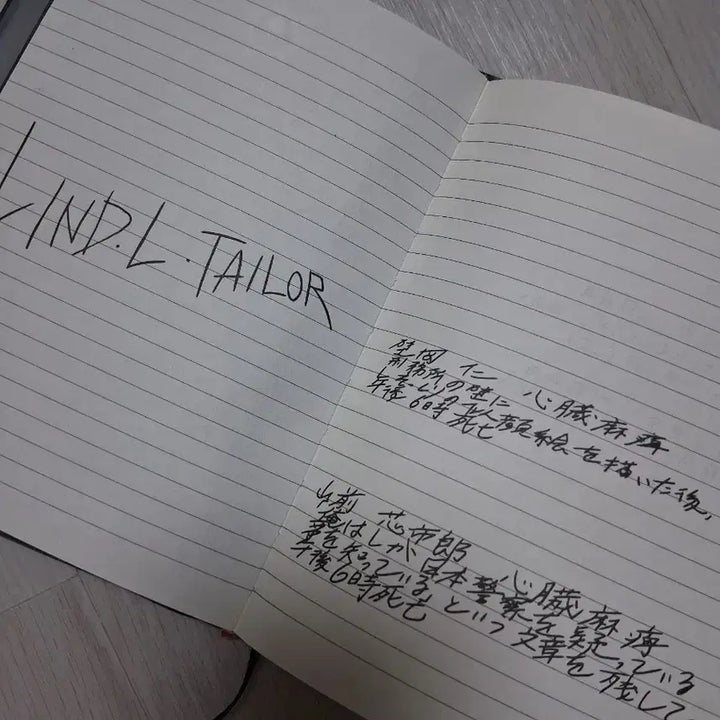 LIND.L.TAILOR
岡 仁 心臓麻痺
刑務所の壁に
の似顔絵を描いた後、
午後6時死亡
山前 芯市郎 心臓麻痺
俺はしが日本警察を疑っている
事を知っている という文章を残して
午後6時死亡